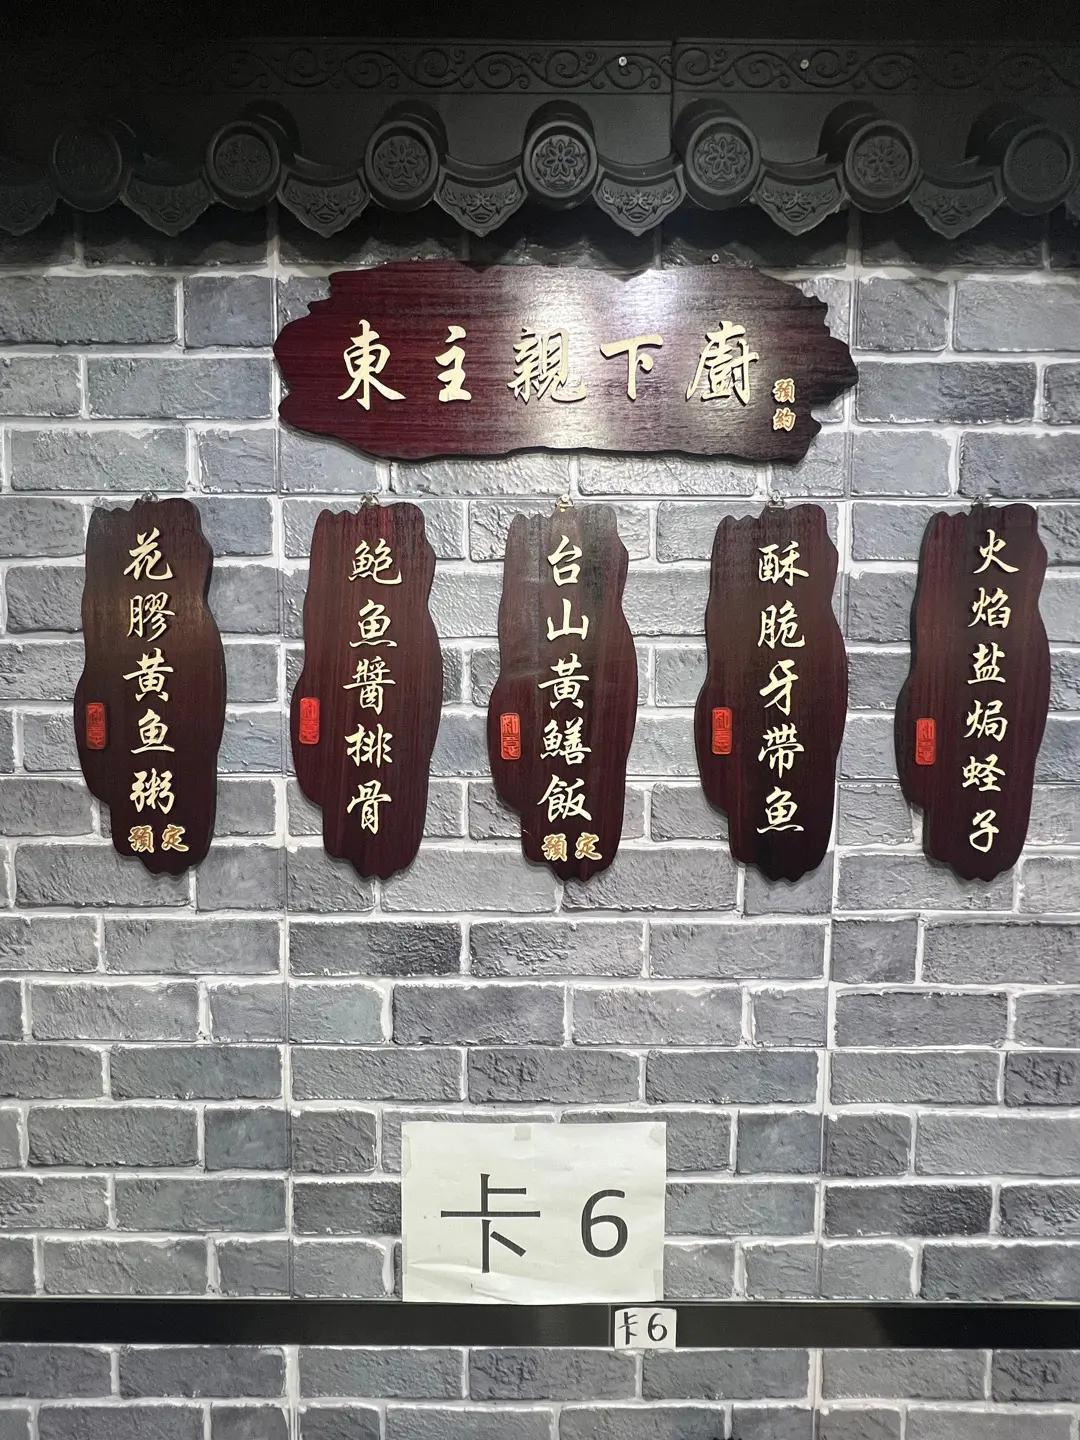 東主親下廚
預約
花膠黃魚粥
預定
鮑魚醬排骨
台山黃鱔飯
預定
酥脆牙帶魚
火焰盐焗蛏子
卡 6
卡6